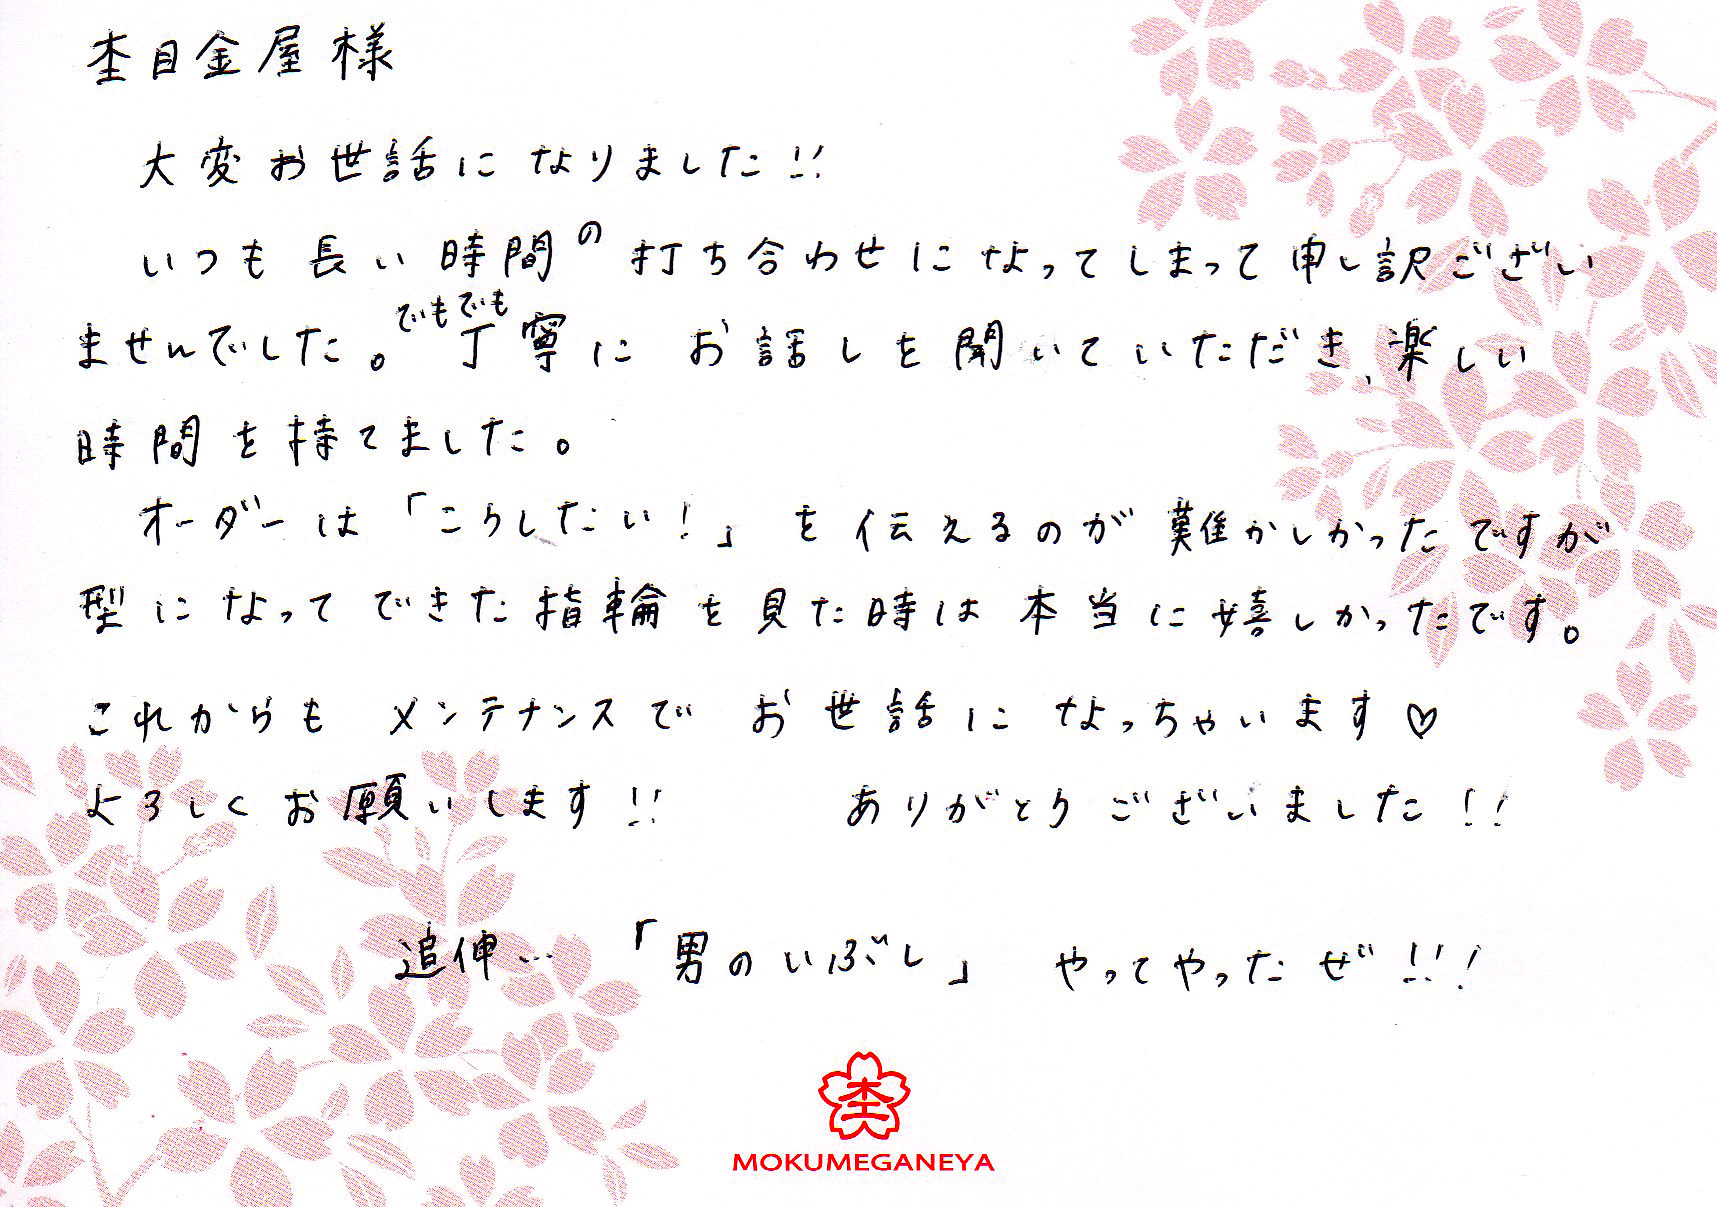 杢目金屋様
大変お世話になりました!!
いつも長い時間の打ち合わせになってしまって申し訳ござい
ませんでした。でもでも丁寧にお話しを聞いていただき、楽しい
時間を持てました。
オーダーは「こうしたい!」を伝えるのが難かしかったですが
型になってできた指輪を見た時は本当に嬉しかったです。
これからもメンテナンスでお世話になっちゃいます♡
よろしくお願いします!! ありがとうございました!!
追伸… 「男のいぶし」 やってやったぜ!!!
杢
MOKUMEGANEYA